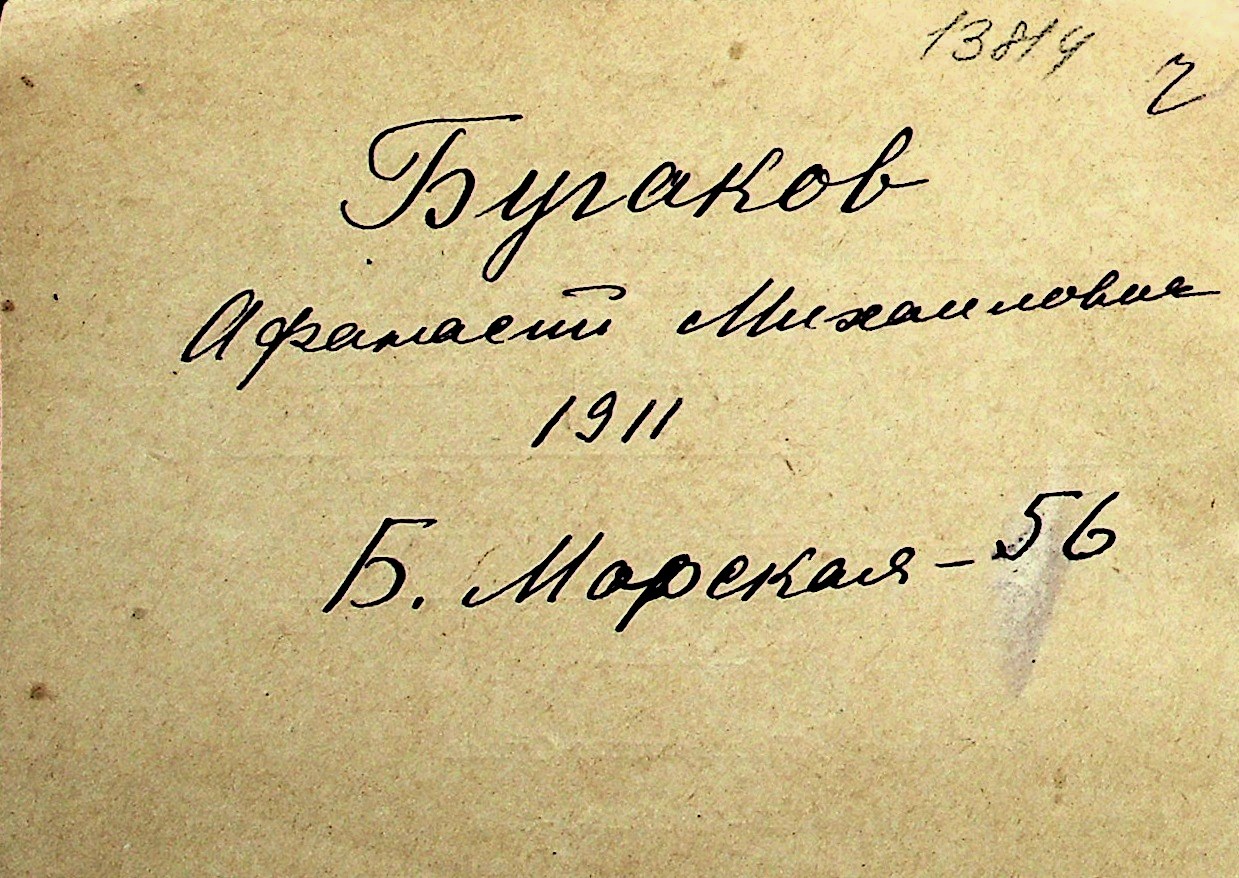 13819
Бугаков
Афанасий Михайлович
1911
Б. Морская - 56